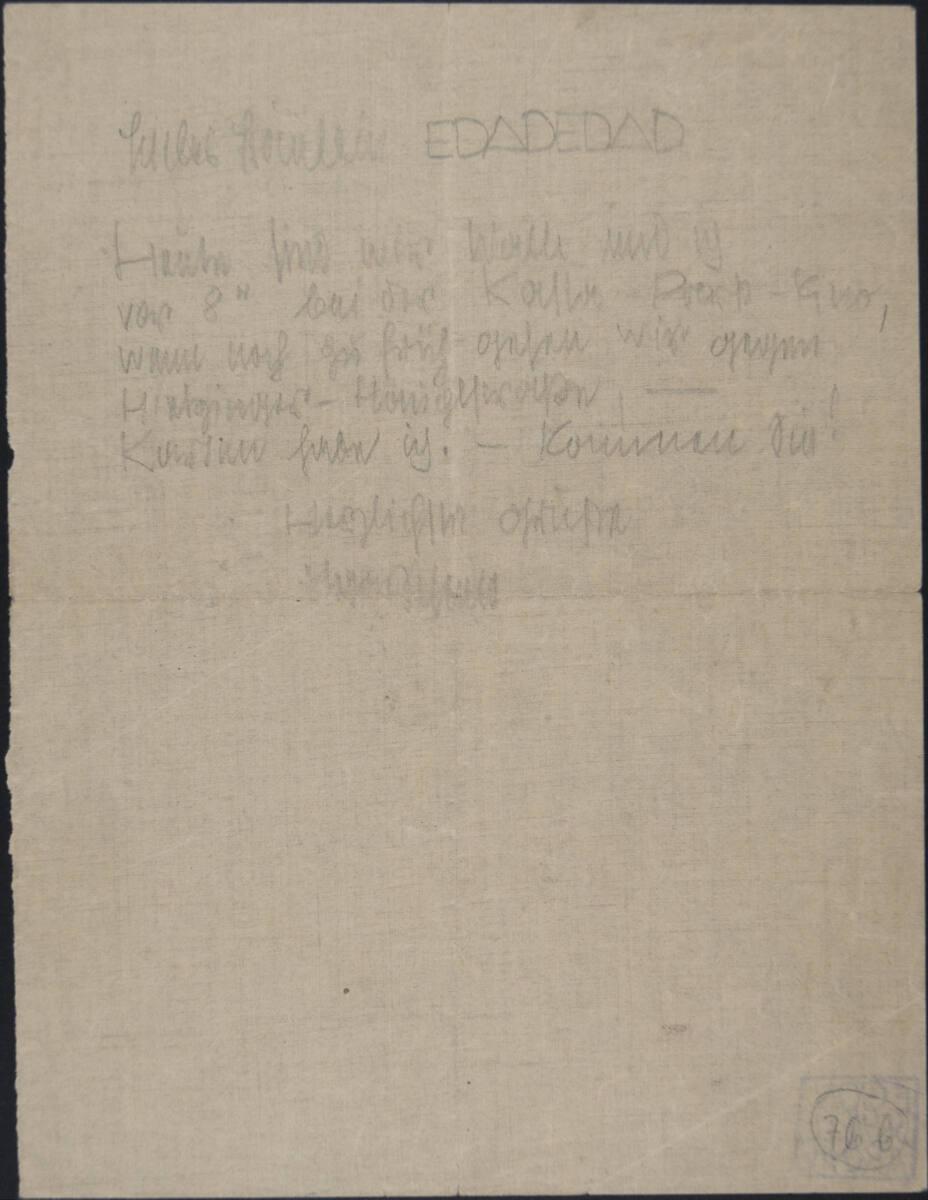 Liebes Fräulein EDADEDAD
Heute sind wir Wally und ich
vor 8h bei der Kassa – Park – Kino,
wenn noch zu früh gehen wir gegen
Hietzinger – Hauptstraße, —
Karten habe ich. – Kommen Sie!
Herzlichste Grüße
766